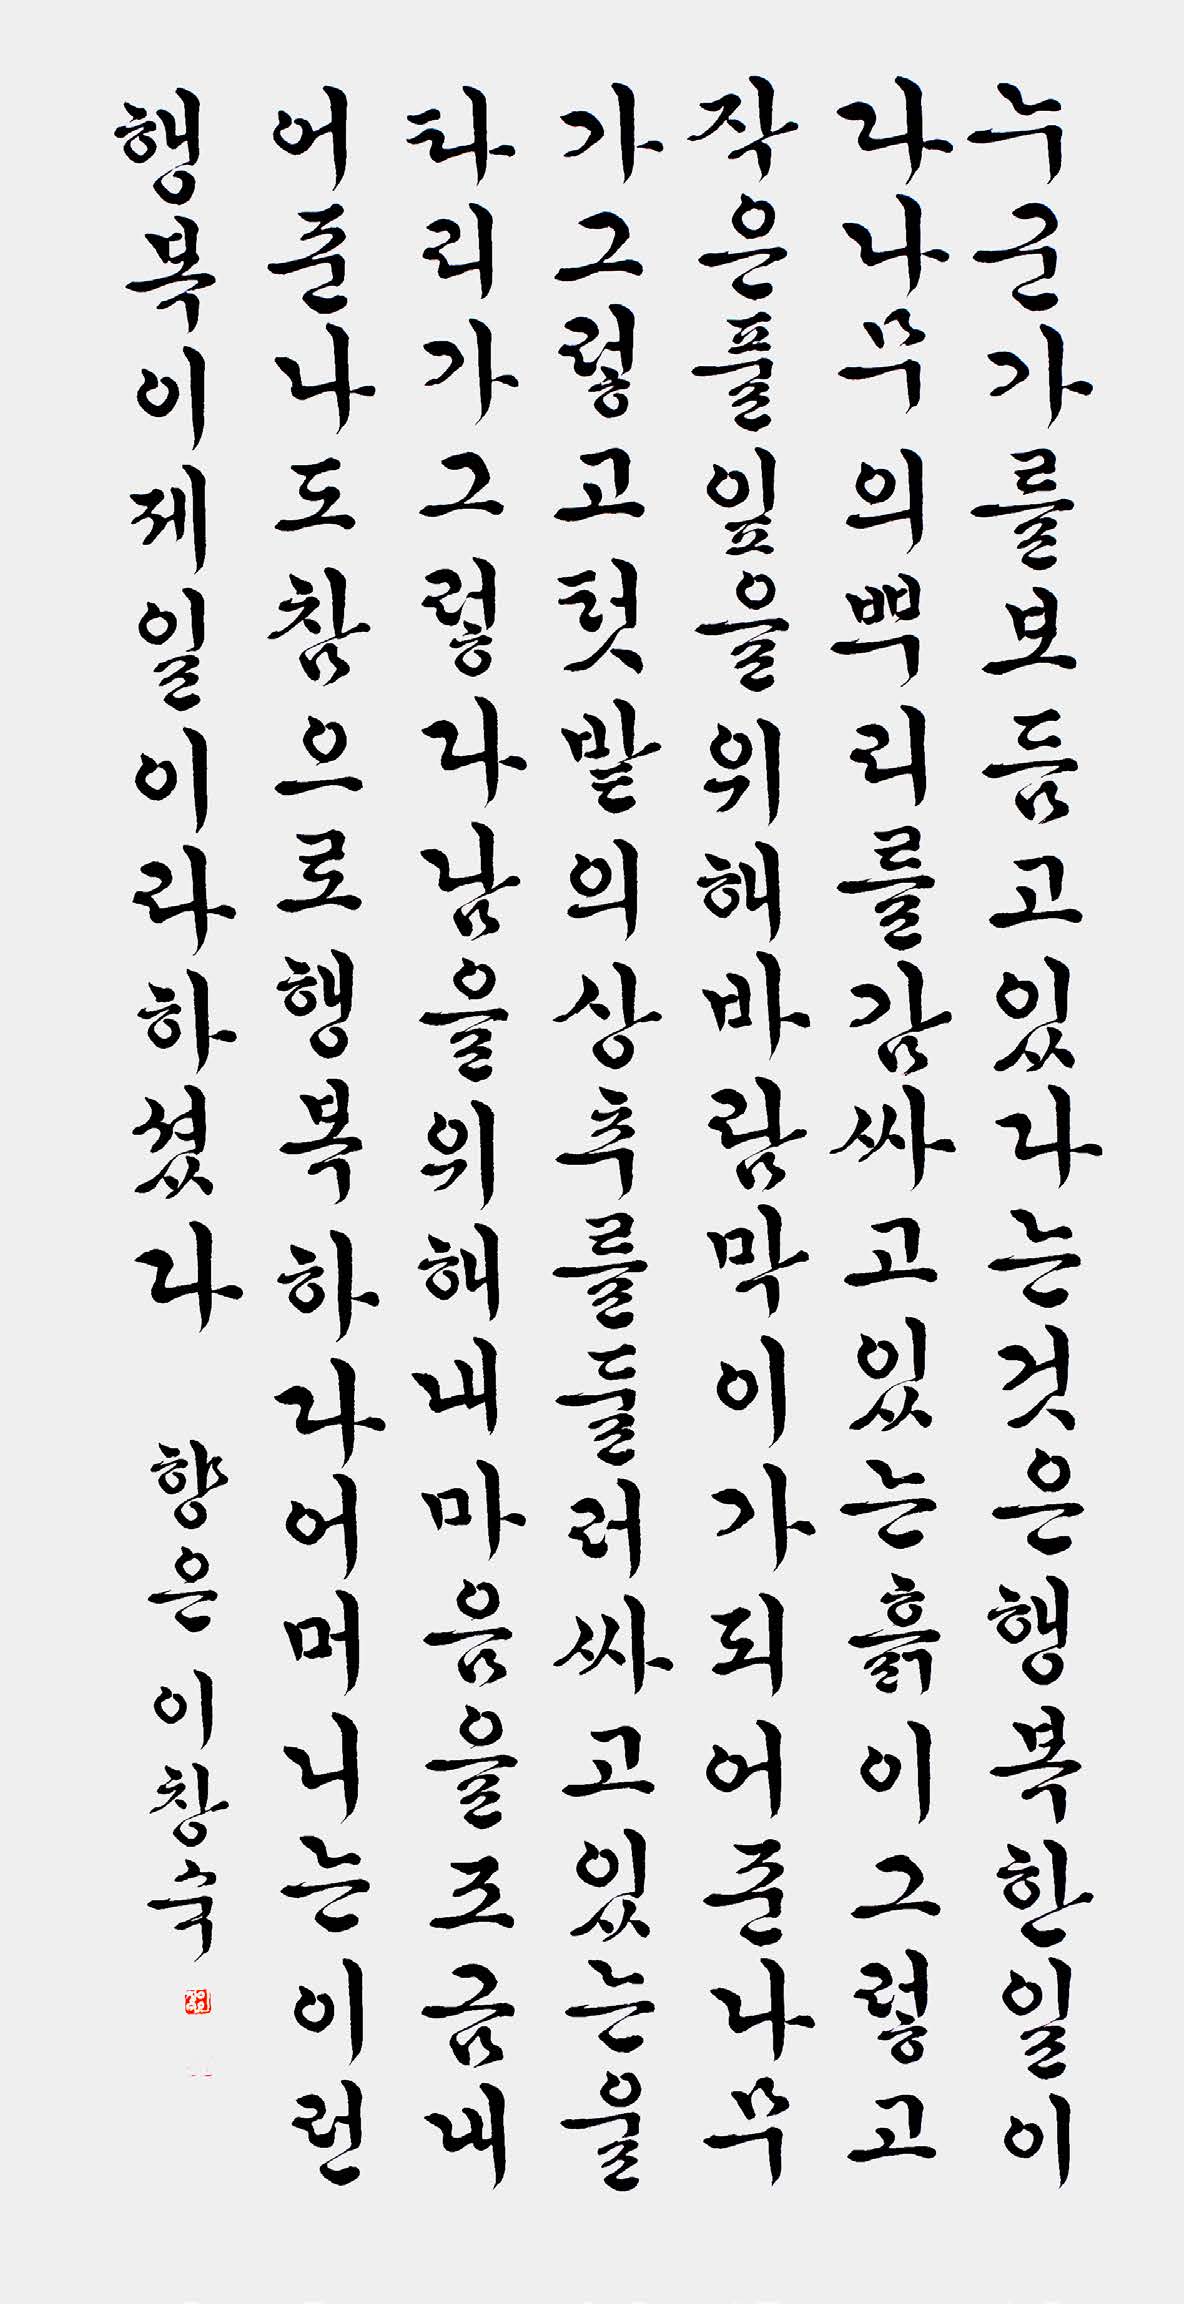 누군가를보듬고있다는것은행복한일이
다나무의뿌리를감싸고있는흙이그렇고
작은풀잎을위해바람막이가되어준나무
가그렇고텃밭의상추를둘러싸고있는울
타리가그렇다남을위해내마음을조금내
어준나도참으로행복하다어머니는이런
행복이제일이라하셨다 향은 이창숙